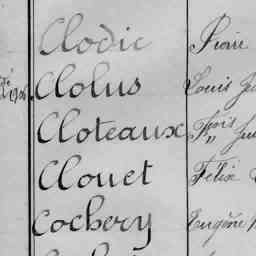 Clodic Pierre
Clolus Louis
Cloteaux
Clouet Félix
Cochery Eugène